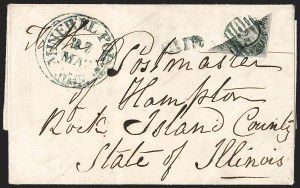 To
27
MAY
PAID
Postmaster
of Hampton
Rock Island County
State of Illinois